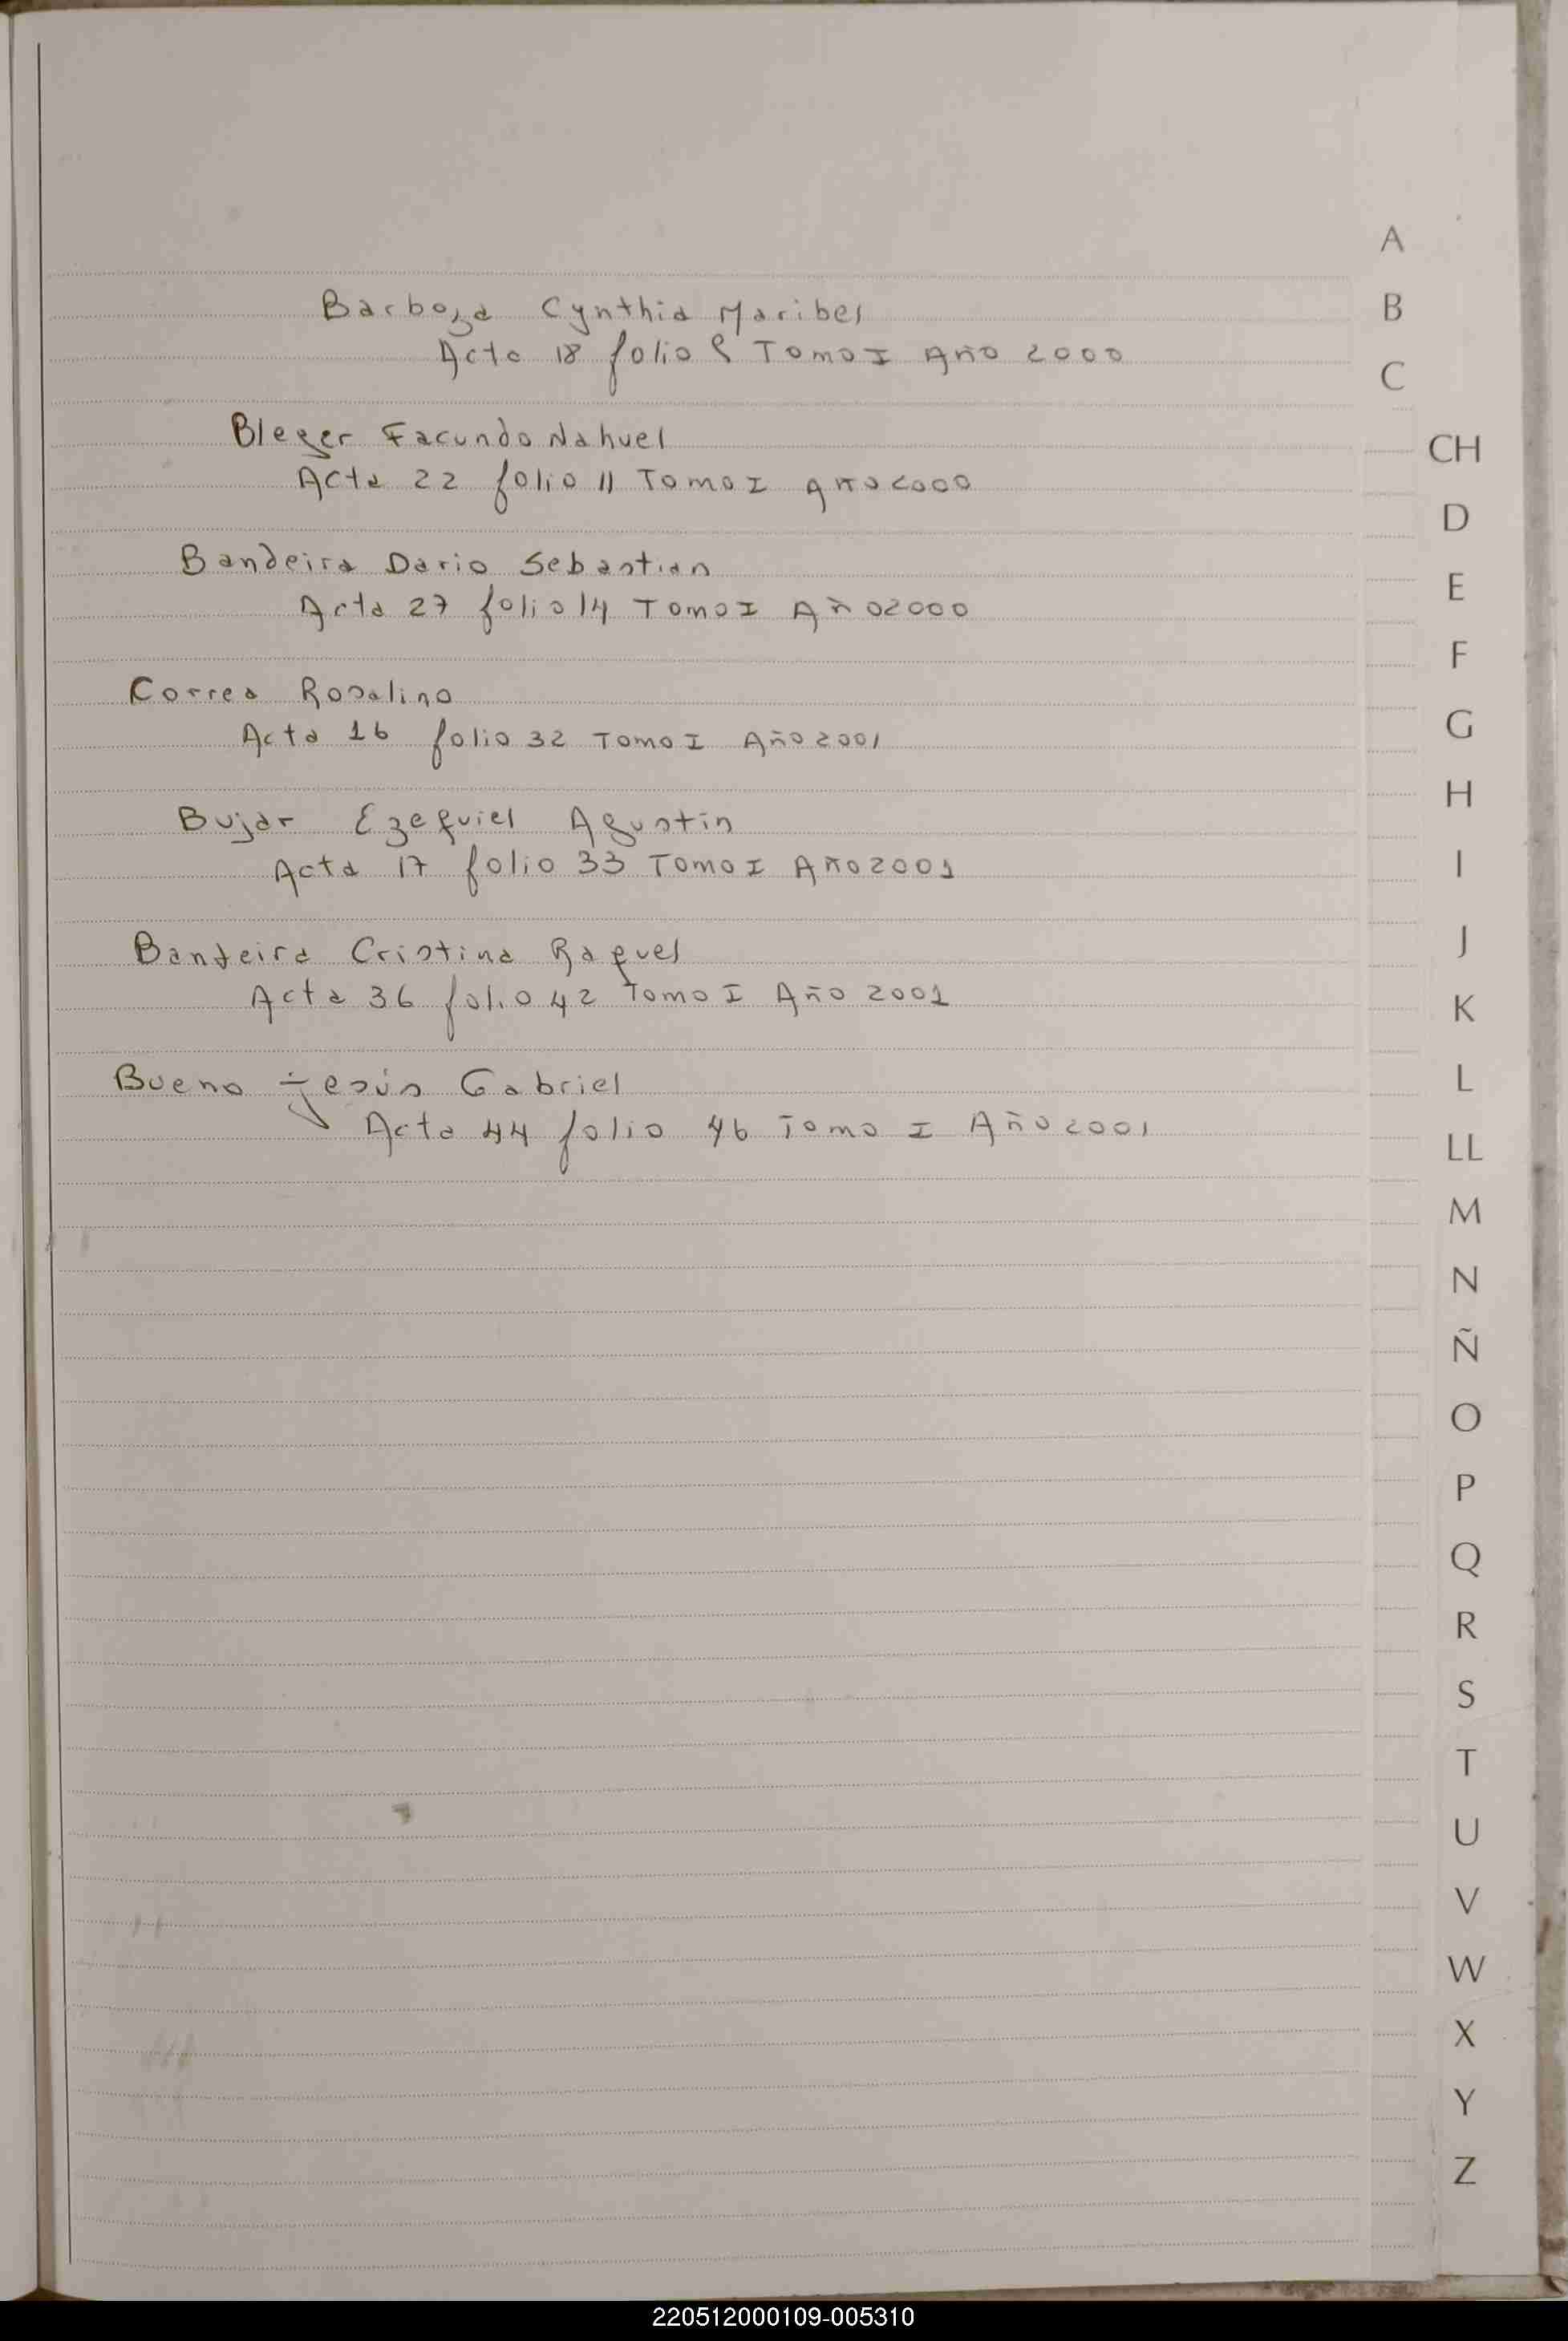 Barboza Cynthia Maribel
Acta 18 folio 8 Tomo I Año 2000
Bleger Facundo Nahuel
Acta 22 folio 11 Tomo I Año 2000
Bandeira Dario Sebastian
Acta 27 folio 14 Tomo I Año 2000
Correa Rosalino
Acta 16 folio 32 Tomo I Año 2001
Bujar Ezequiel Agustin
Acta 17 folio 33 Tomo I Año 2001
Bandeira Cristina Raquel
Acta 36 folio 42 Tomo I Año 2001
Bueno Jesús Gabriel
Acta 44 folio 46 Tomo I Año 2001
A
B
C
CH
D
E
F
G
H
I
J
K
L
LL
M
N
Ñ
O
P
Q
R
S
T
U
V
W
X
Y
Z
220512000109-005310